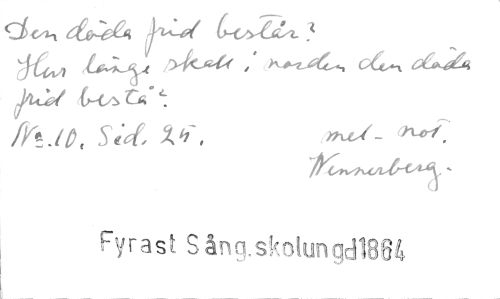 Den döda frid består?
Hur länge skall i norden den döda
frid bestå?
No. 10. Sid. 25.
mel-not.
Wennerberg.
Fyrast Sång.skolungd1864